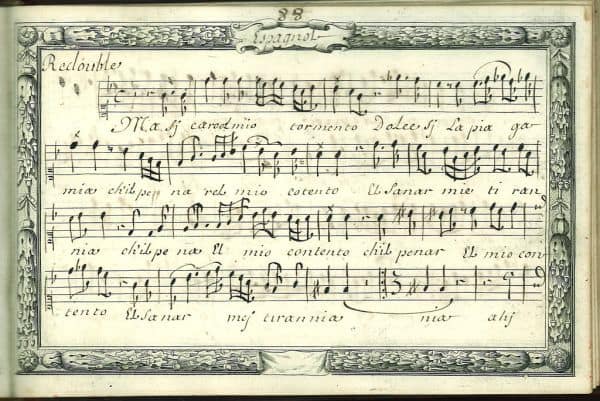 88
Espagnol
Redouble
Ma si caro'l mio tormento Dolce si La pia ga
mia ch'il pe na rel mio cotento El sanar mie ti ran
nia ch'il pe na El mio contento ch'il penar El mio con
tento El sanar mej tirannia nia ahj